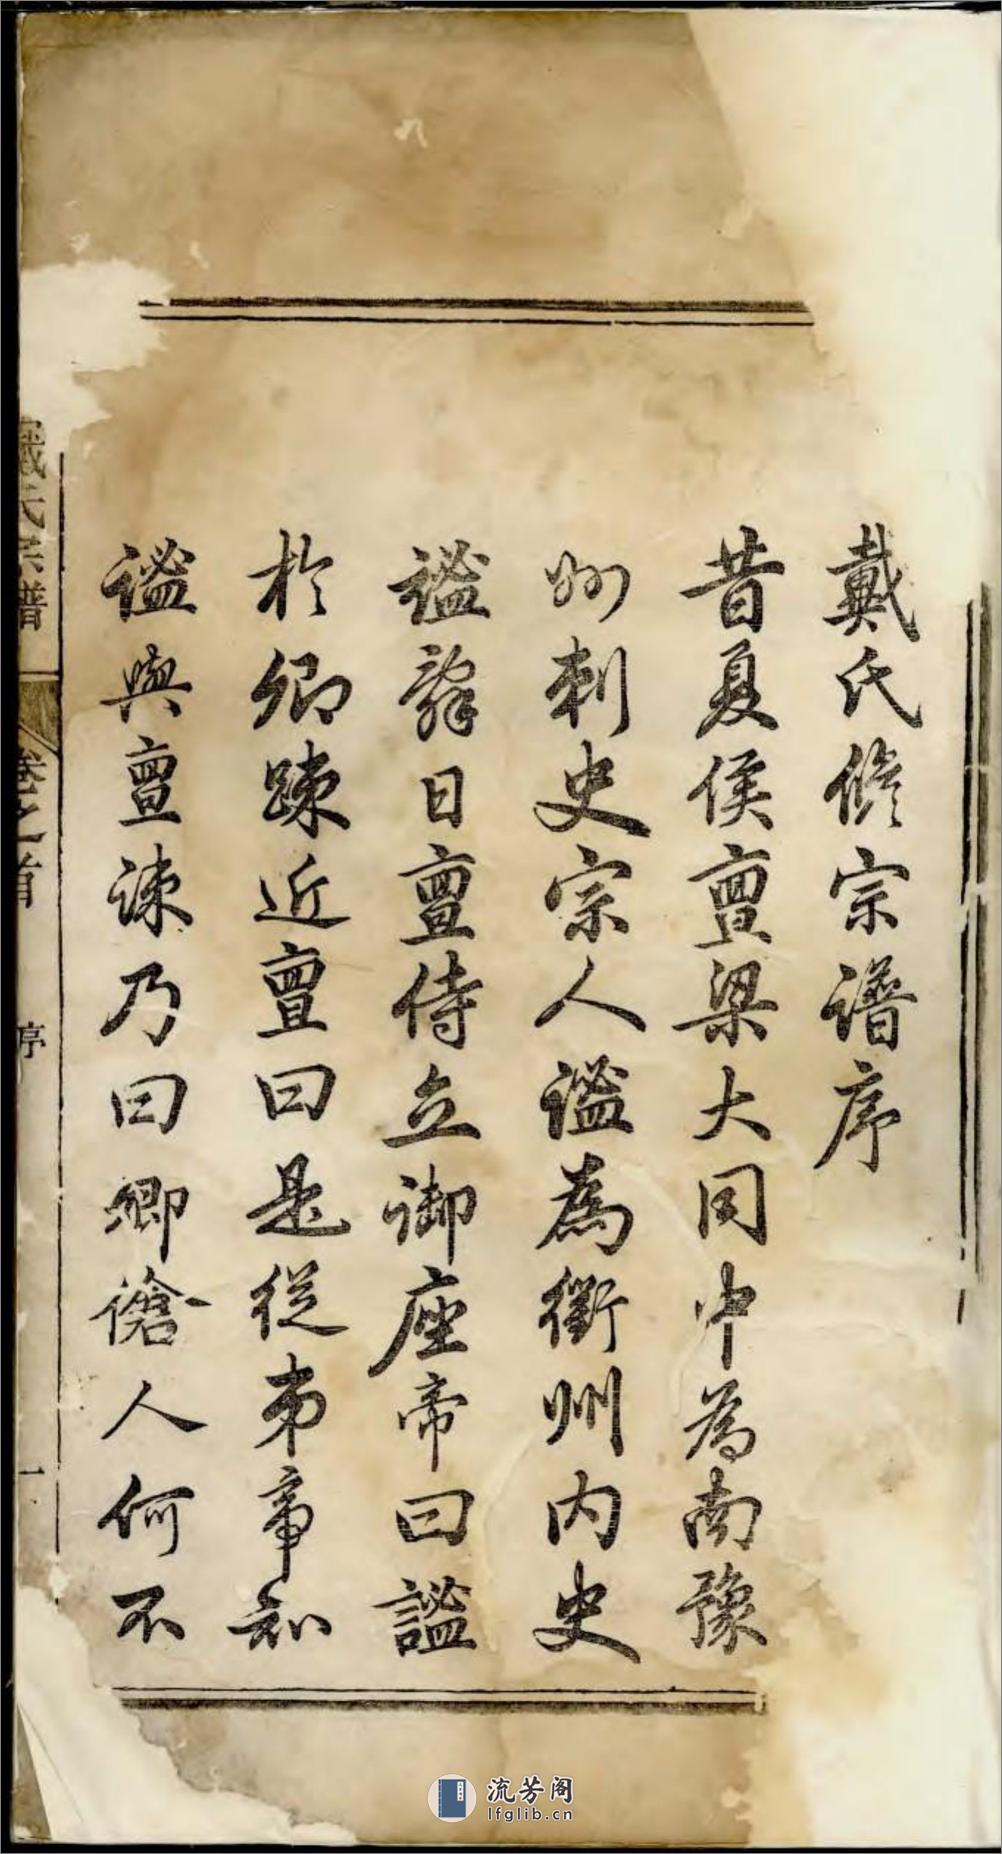 戴氏修宗譜序
昔夏侯亶梁大同中為南豫
州刺史宗人謐為衡州內史
謐辭日亶侍立御座帝曰謐
於卿踈近亶曰是從弟帝知
謐與亶踈乃曰卿傖人何不
戴氏宗譜
卷之首
序
一
流芳阁
lfglib.cn